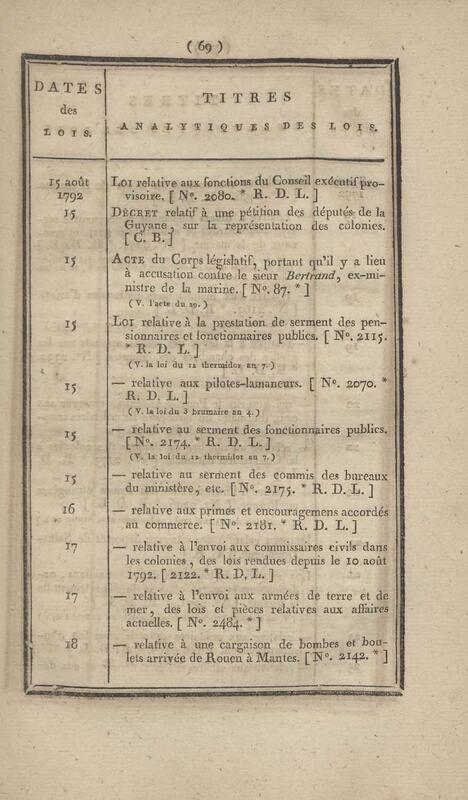 ( 69 )
DATES
des
LOIS.
TITRES
ANALYTIQUES DES LOIS.
15 août
1792
LOI relative aux fonctions du Conseil exécutif pro-
visoire. [ N°. 2080. * R. D. L. ]
15
DÉCRET relatif à une pétition des députés de la
Guyane, sur la représentation des colonies.
[ C. B. ]
15
ACTE du Corps législatif, portant qu'il y a lieu
à accusation contre le sieur Bertrand, ex-mi-
nistre de la marine. [ N°. 87. * ]
( V. l'acte du 29. )
15
LOI relative à la prestation de serment des pen-
sionnaires et fonctionnaires publics. [ N°. 2115.
* R. D. L. ]
( V. la loi du 12 thermidor an 7. )
15
— relative aux pilotes-lamaneurs. [ N°. 2070. *
R. D. L. ]
( V. la loi du 3 brumaire an 4. )
15
— relative au serment des fonctionnaires publics.
[ N°. 2174. * R. D. L. ]
( V. la loi du 12 thermidor an 7. )
15
— relative au serment des commis des bureaux
du ministère, etc. [ N°. 2175. * R. D. L. ]
16
— relative aux primes et encouragemens accordés
au commerce. [ N°. 2181. * R. D. L. ]
17
— relative à l'envoi aux commissaires civils dans
les colonies, des lois rendues depuis le 10 août
1792. [ 2122. * R. D. L. ]
17
— relative à l'envoi aux armées de terre et de
mer, des lois et pièces relatives aux affaires
actuelles. [ N°. 2484. * ]
18
— relative à une cargaison de bombes et bou-
lets arrivée de Rouen à Mantes. [ N°. 2142. * ]